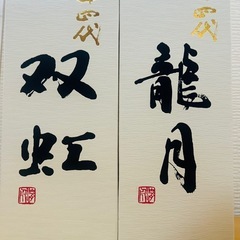 十四代
双虹
四代
龍月